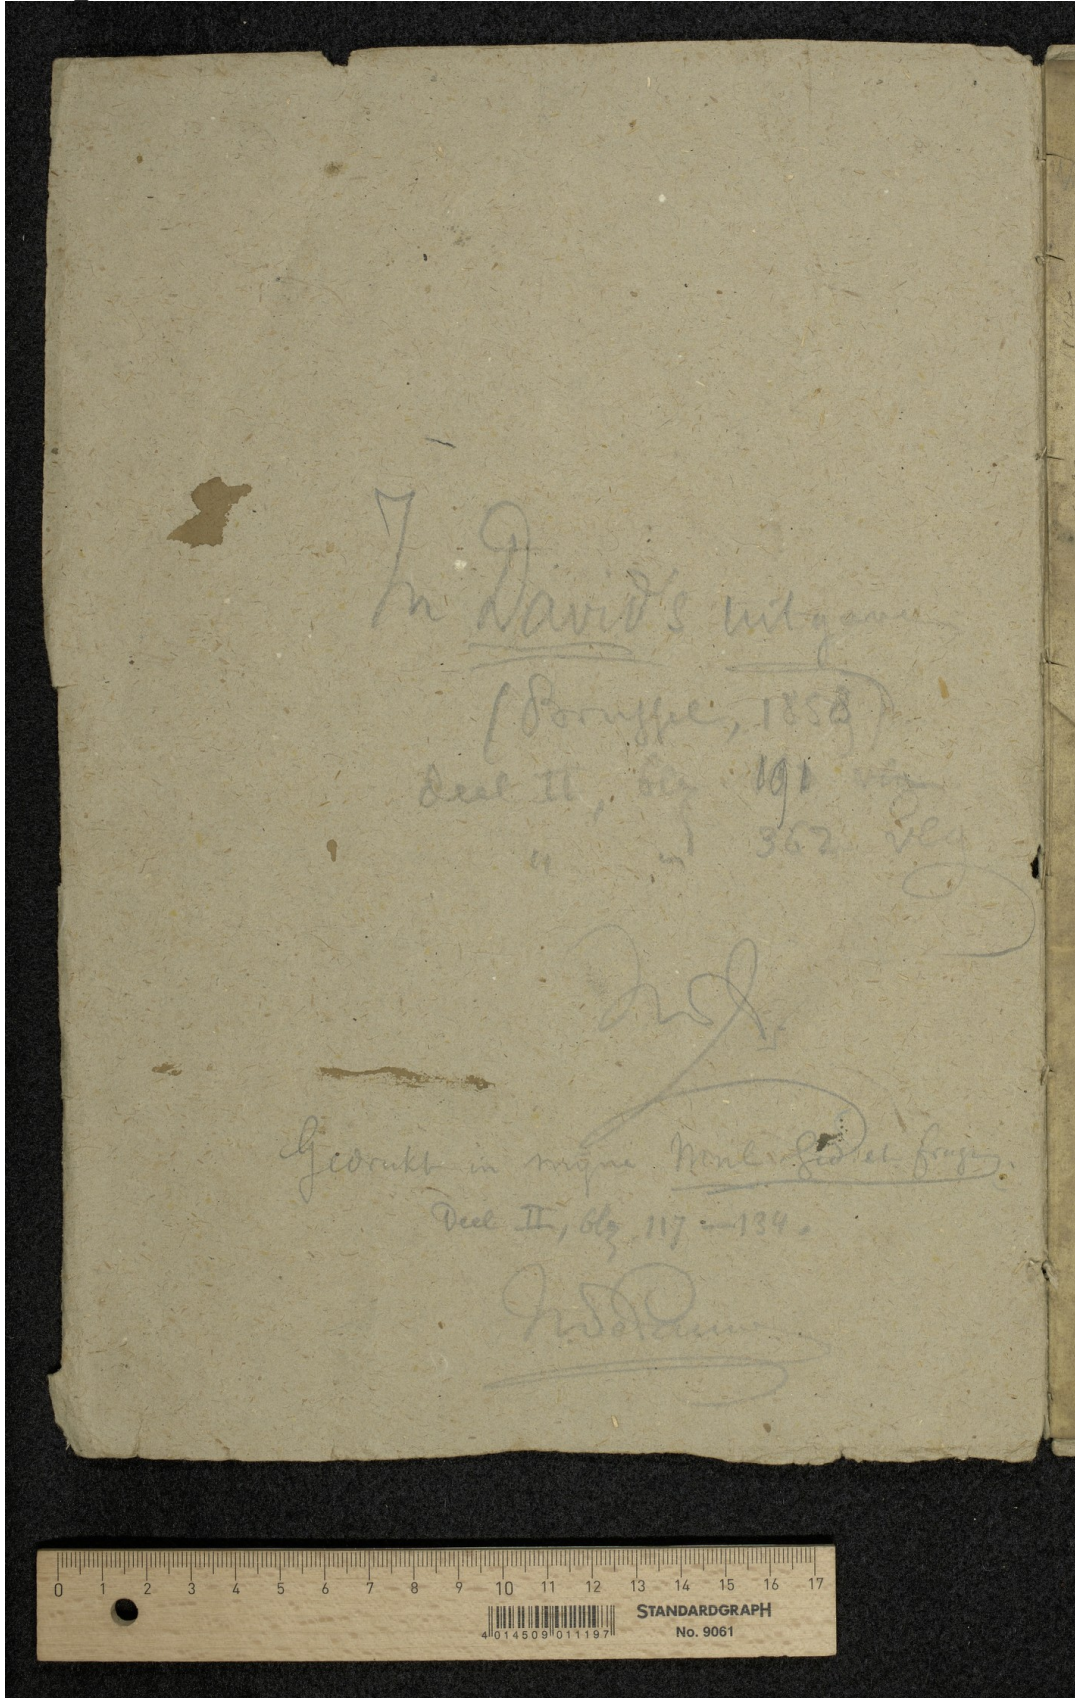 In David's uitgave
(Brussel, 1858)
Deel II, blz. 191 vlg.
" " 362 vlg.
Gedrukt in mijne Noml. Ged. et fragm.
Deel II, blz. 117 — 134.
0 1 2 3 4 5 6 7 8 9 10 11 12 13 14 15 16 17
4 014509 011197
STANDARDGRAPH
No. 9061